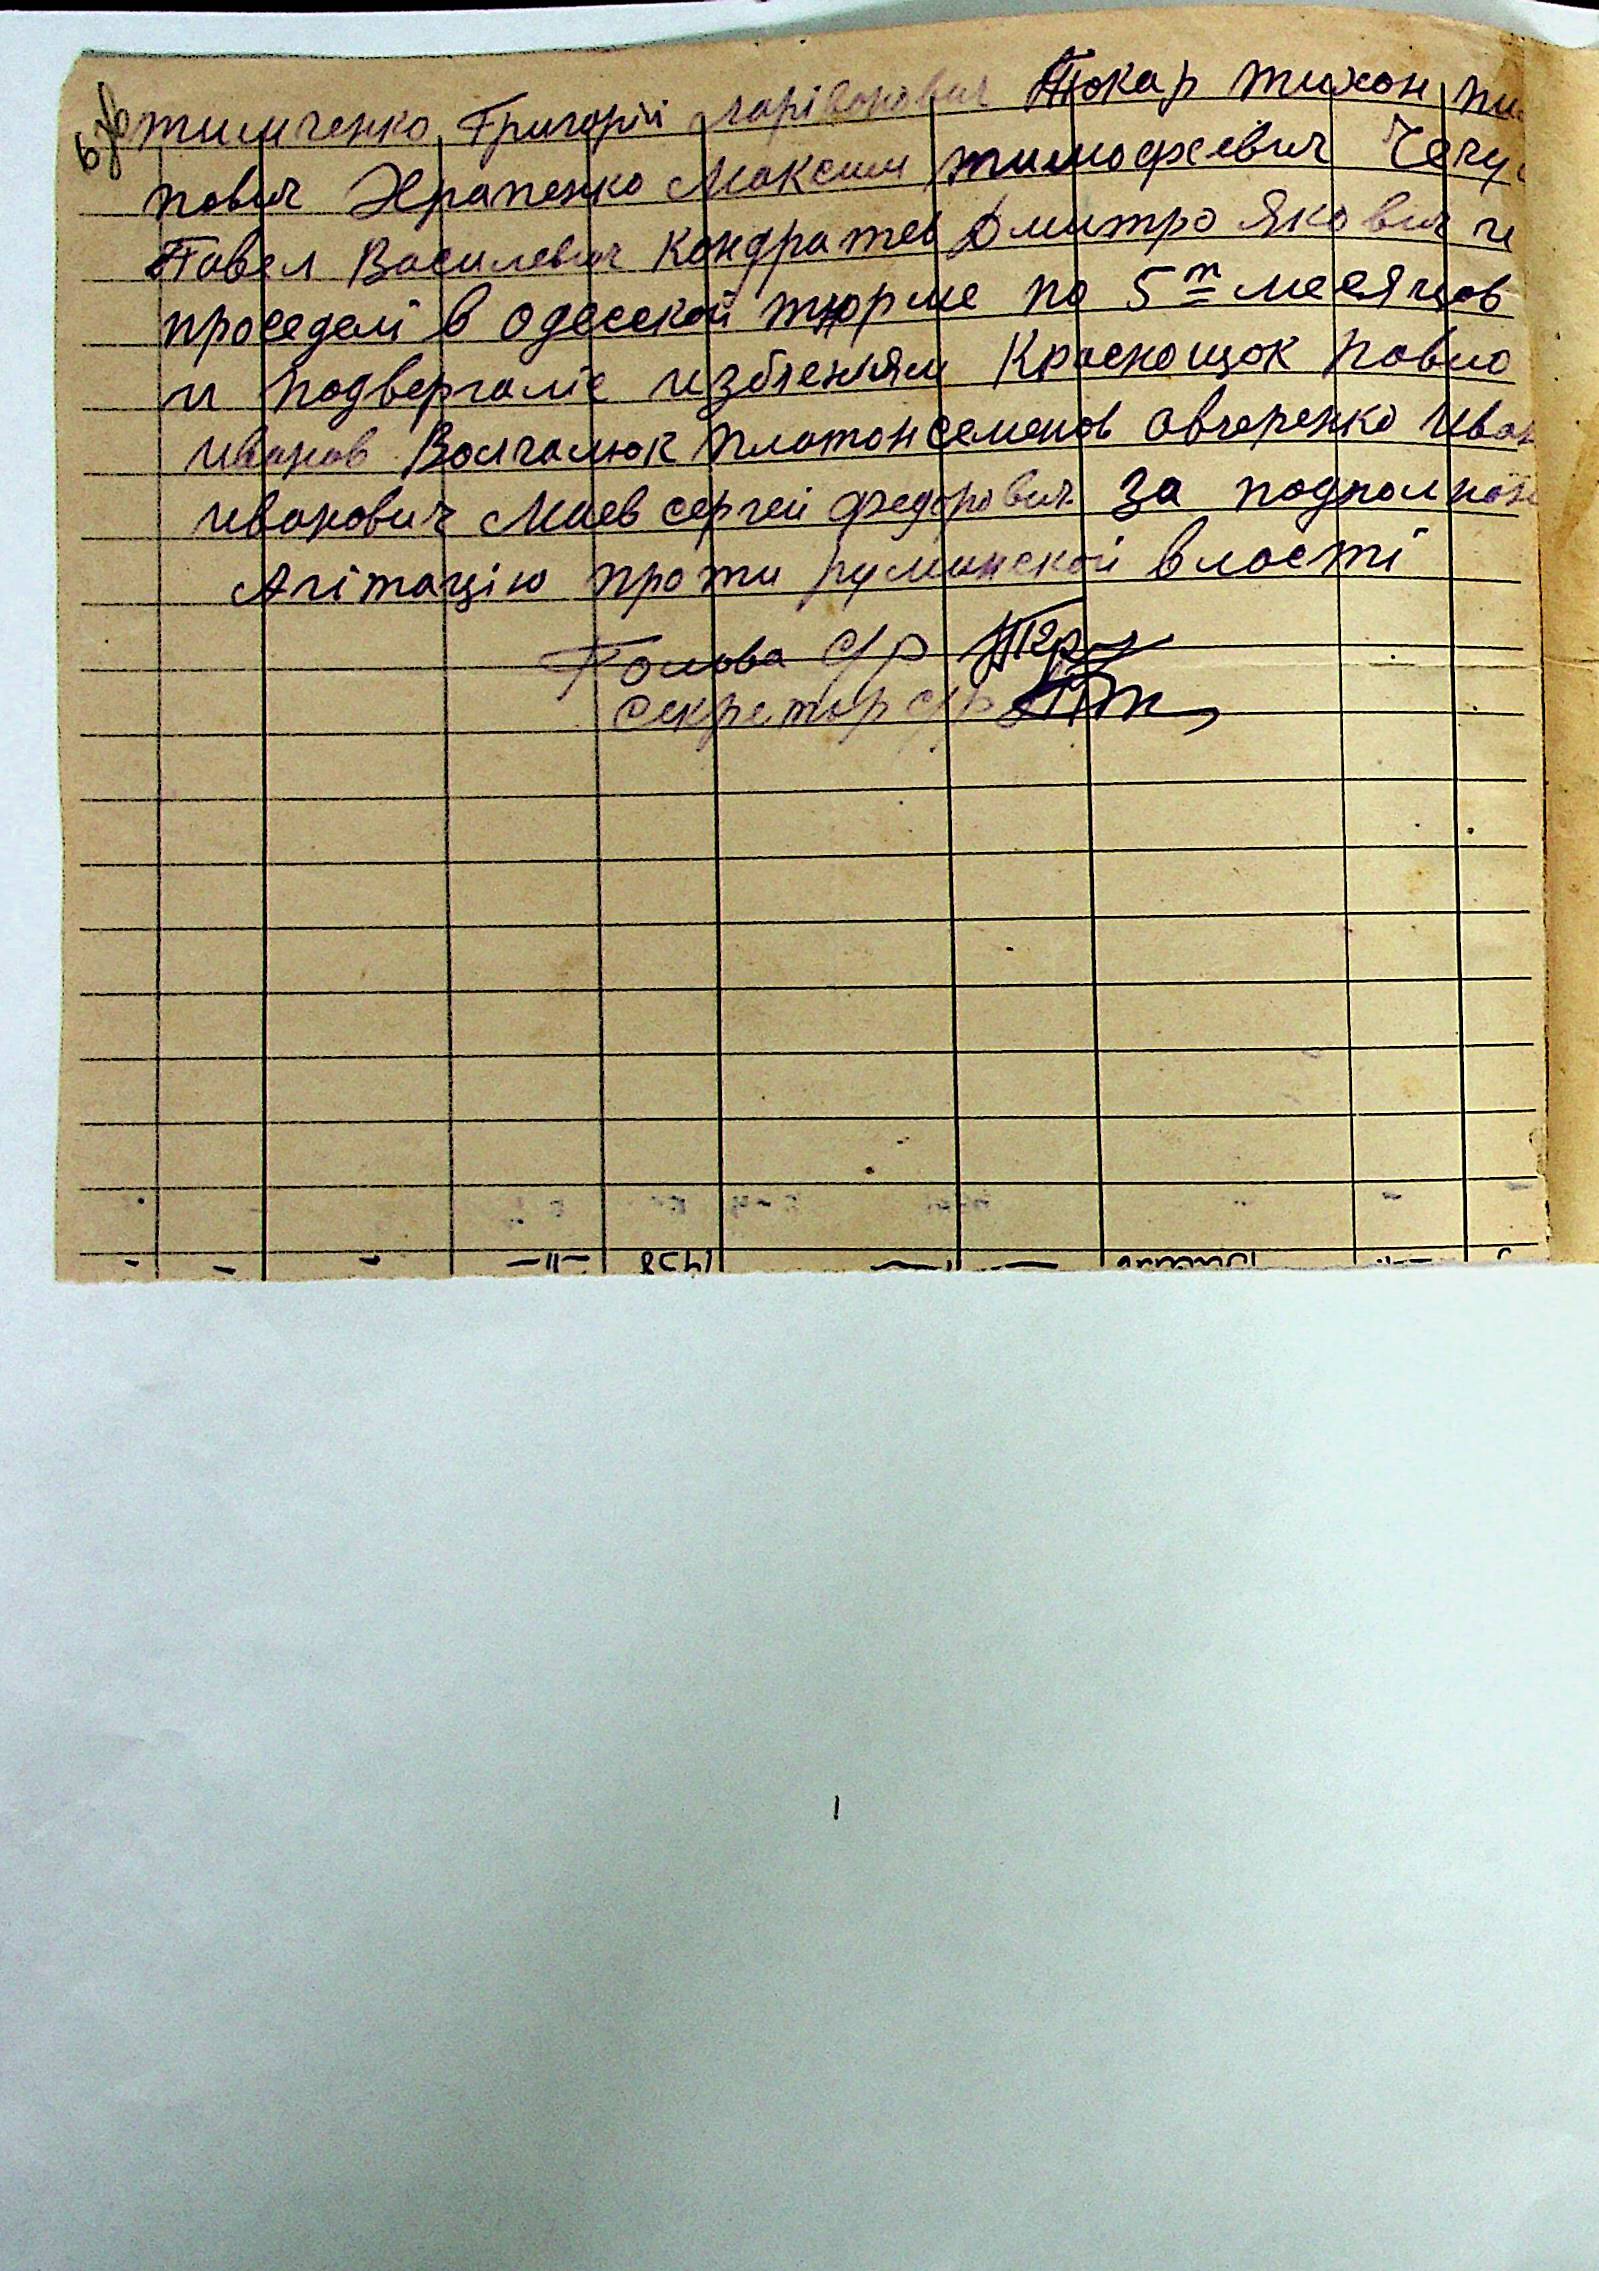 тимченко Григорій ларівонович Токар тихон пи
пович Храпенко Максим тимофеевич Чечу
Павел Василевич Кондратев Дмитро Якович и
проседелі в одесской тюрме по 5т месяцов
и подвергаліс избіениям Краснощок Павло
иванов Волчалюк платон семенов овчаренко Иван
иванович Маев сергей федорович за подполной
Агітацію проти руминской власті
Голова с/р
секретар с/р